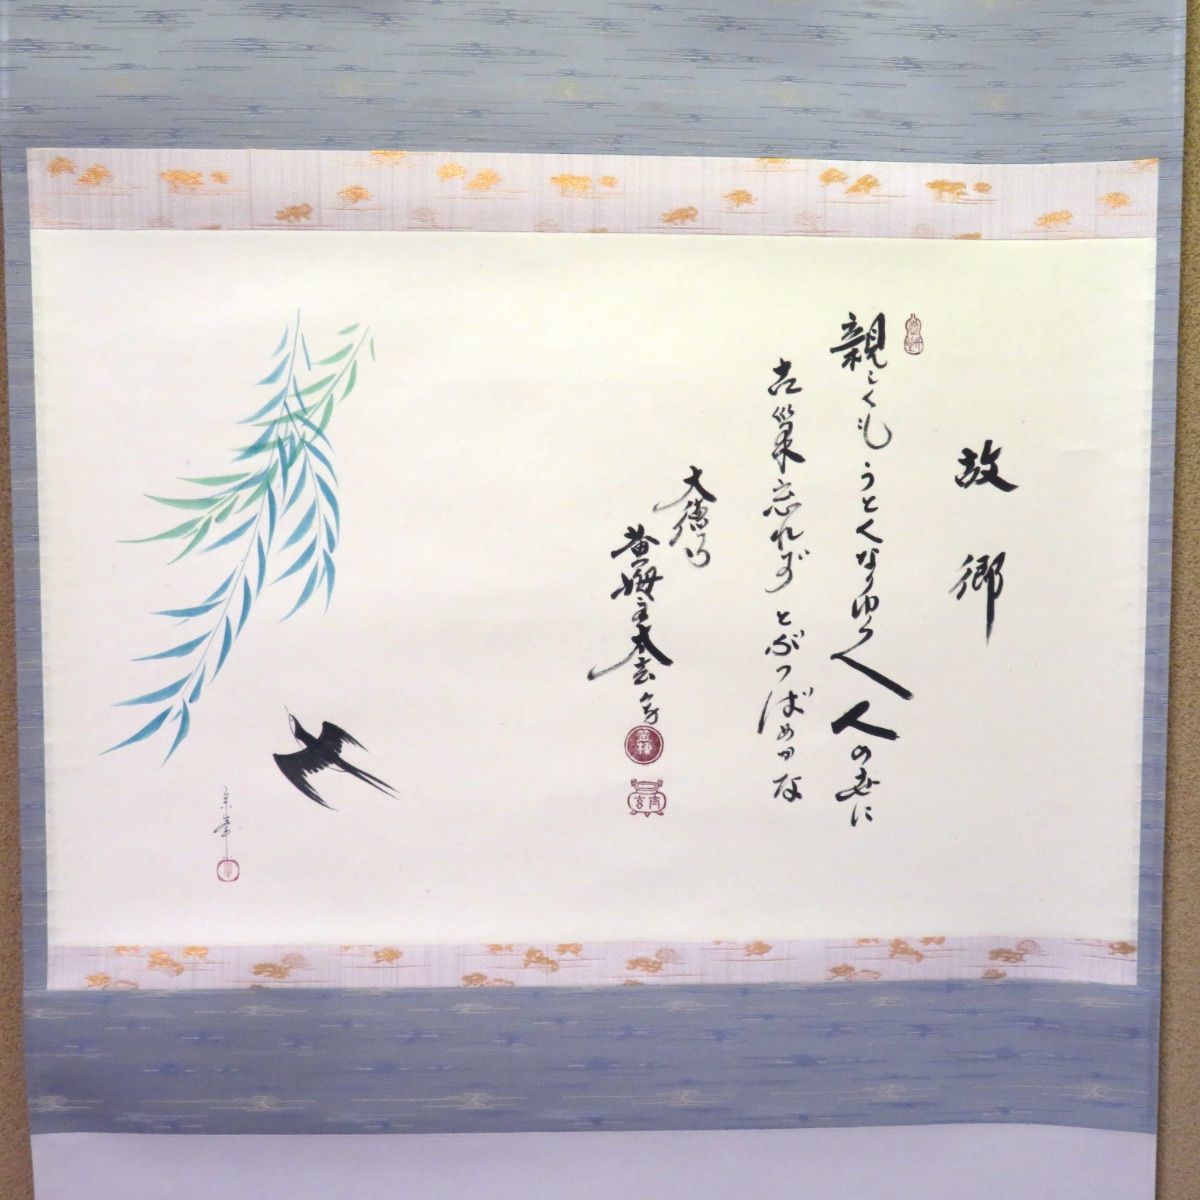 故郷
親しくも うとくなりゆく 人の世に
古巣忘れず とぶつばめかな
大徳
黄梅 主 太玄